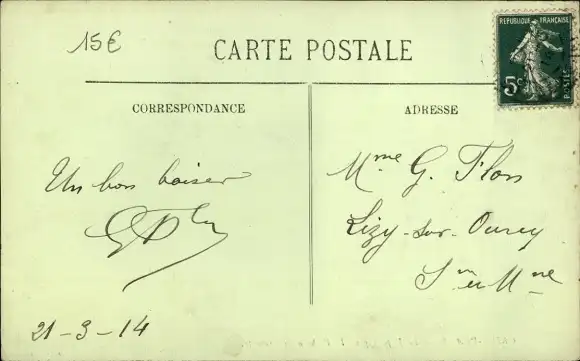 15€
CARTE POSTALE
REPUBLIQUE FRANÇAISE
5c
POSTES
CORRESPONDANCE
ADRESSE
Un bon baiser
21-3-14
Mme G. Flon
Lizy-sur-Ourcq
Sne et Mne